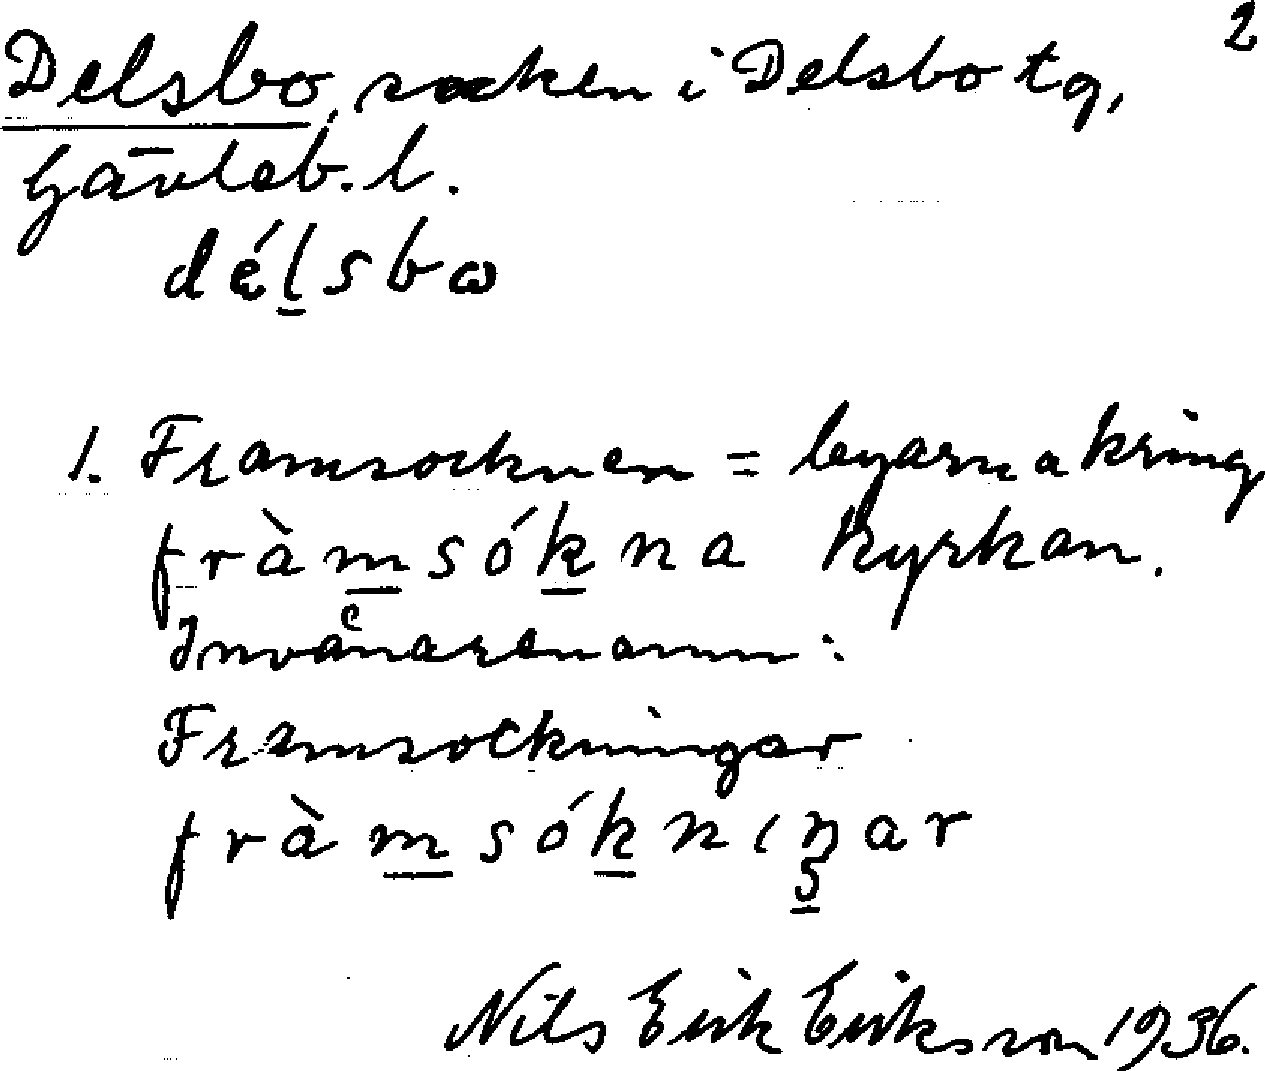 2
Delsbo, socken i Delsbo tg,
Gävleb. l.
dél̲sbω
1. Framsocknen = byarna kring
fràm̲sók̲na kyrkan.
Invånarenamn:
Framsockningar
fràm̲sók̲nıŋar
Nils Erik Eriksson 1936.